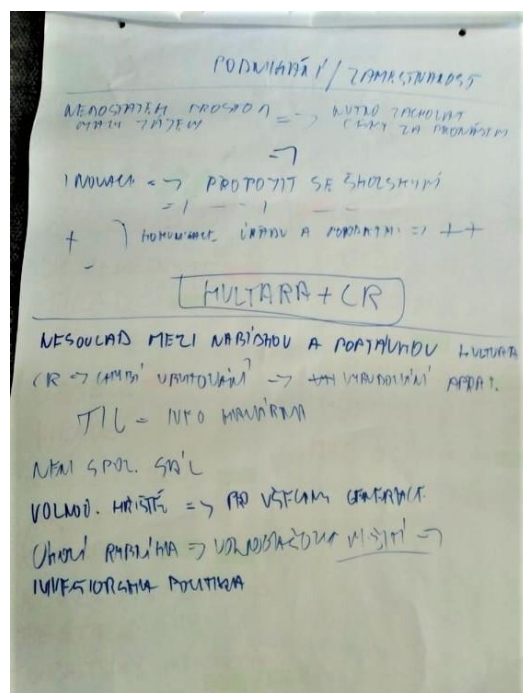 PODNIKÁNÍ / ZAMĚSTNANOST
NEDOSTATEK PROSTOR A => NUTNO ZACHOVAT
MALÝ ZÁJEM CENY ZA PRONÁJEM
=>
INOVACE => PROPOJIT SE ŠKOLSKÝMI
+ KOMUNIKACE ÚŘADU A PODNIKAT. => ++
-
KULTURA + CR
NESOULAD MEZI NABÍDKOU A POPTÁVKOU KULTURA
CR -> CHYBÍ UBYTOVÁNÍ -> VYBUDOVÁNÍ APART.
TIC = INFO KAVÁRNA
NENÍ SPOL. SÁL
VOLNOČ. HŘIŠTĚ => PRO VŠECHNY GENERACE
OKOLÍ RYBNÍKA => VOLNOČASOVÉ VYŽITÍ =>
INVESTORSKÁ POLITIKA